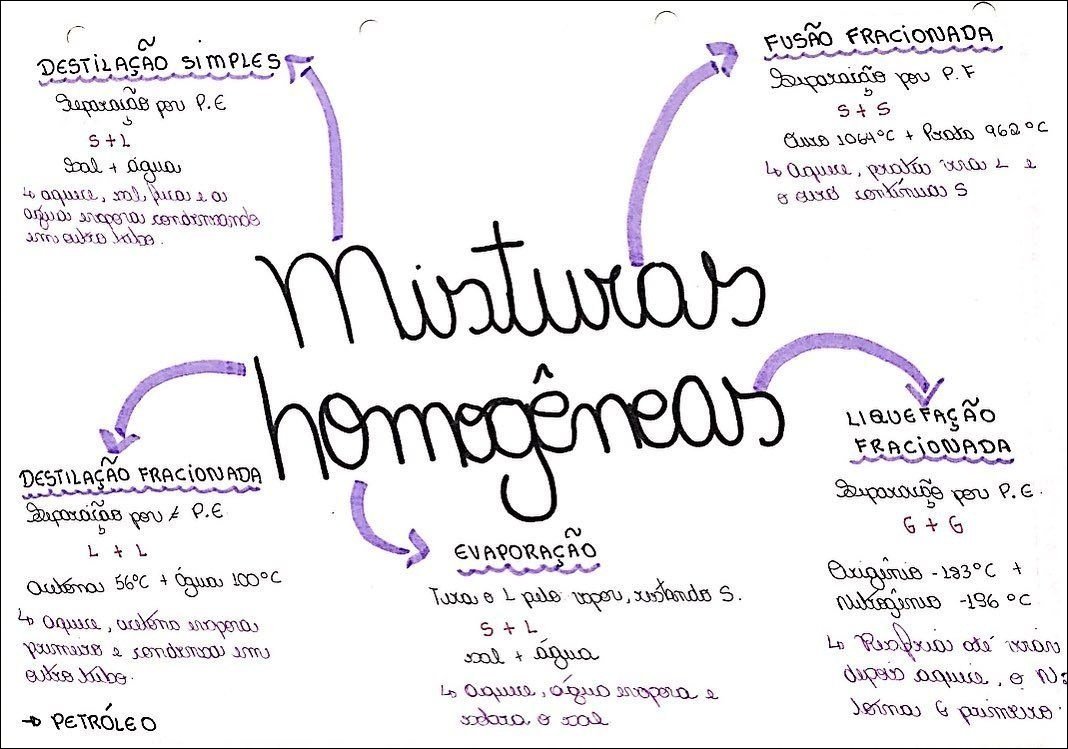 DESTILAÇÃO SIMPLES
Separação por P.E
S + L
Sal + água
↳ aquece, sal fica e a
água evapora condensando
em outro tubo.
FUSÃO FRACIONADA
Separação por P.F
S + S
Ouro 1064°C + Prata 962°C
↳ Aquece, prata vira L e
o ouro continua S
Misturas
homogêneas
DESTILAÇÃO FRACIONADA
Separação por ≠ P.E
L + L
Acetona 56°C + Água 100°C
↳ aquece, acetona evapora
primeiro e condensa em
outro tubo.
→ PETRÓLEO
EVAPORAÇÃO
Tira o L pelo vapor, restando S.
S + L
sal + água
↳ aquece, água evapora e
sobra o sal
LIQUEFAÇÃO
FRACIONADA
Separação por P.E.
G + G
Oxigênio -183°C +
Nitrogênio -196°C
↳ Resfria até virar
depois aquece, o N2
torna G primeiro.